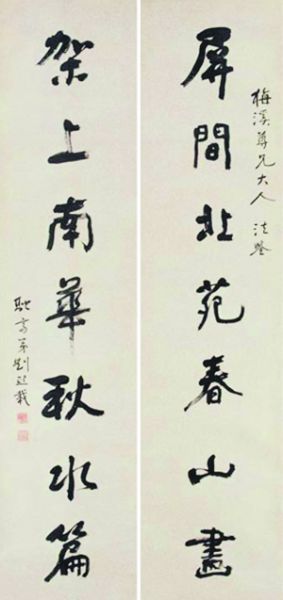 屏間北苑春山畫
梅溪尊兄大人 法鑒
架上南華秋水篇
熙載